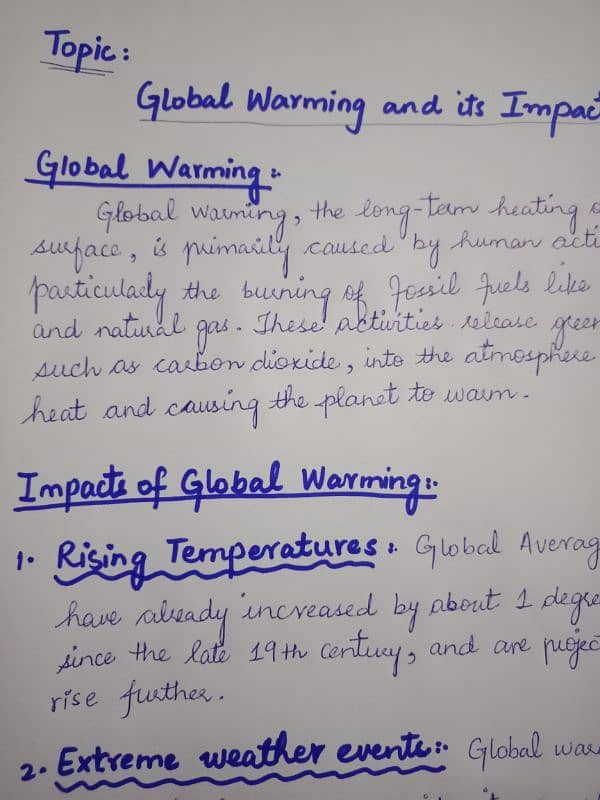 Topic:
Global Warming and its Impac
Global Warming:
Global warming, the long-term heating
surface, is primarily caused by human acti
particularly the burning of fossil fuels like
and natural gas. These activities release green
such as carbon dioxide, into the atmosphere
heat and causing the planet to warm.
Impacts of Global Warming:
1. Rising Temperatures: Global Averag
have already increased by about 1 degre
since the late 19th century, and are projec
rise further.
2. Extreme weather events: Global war